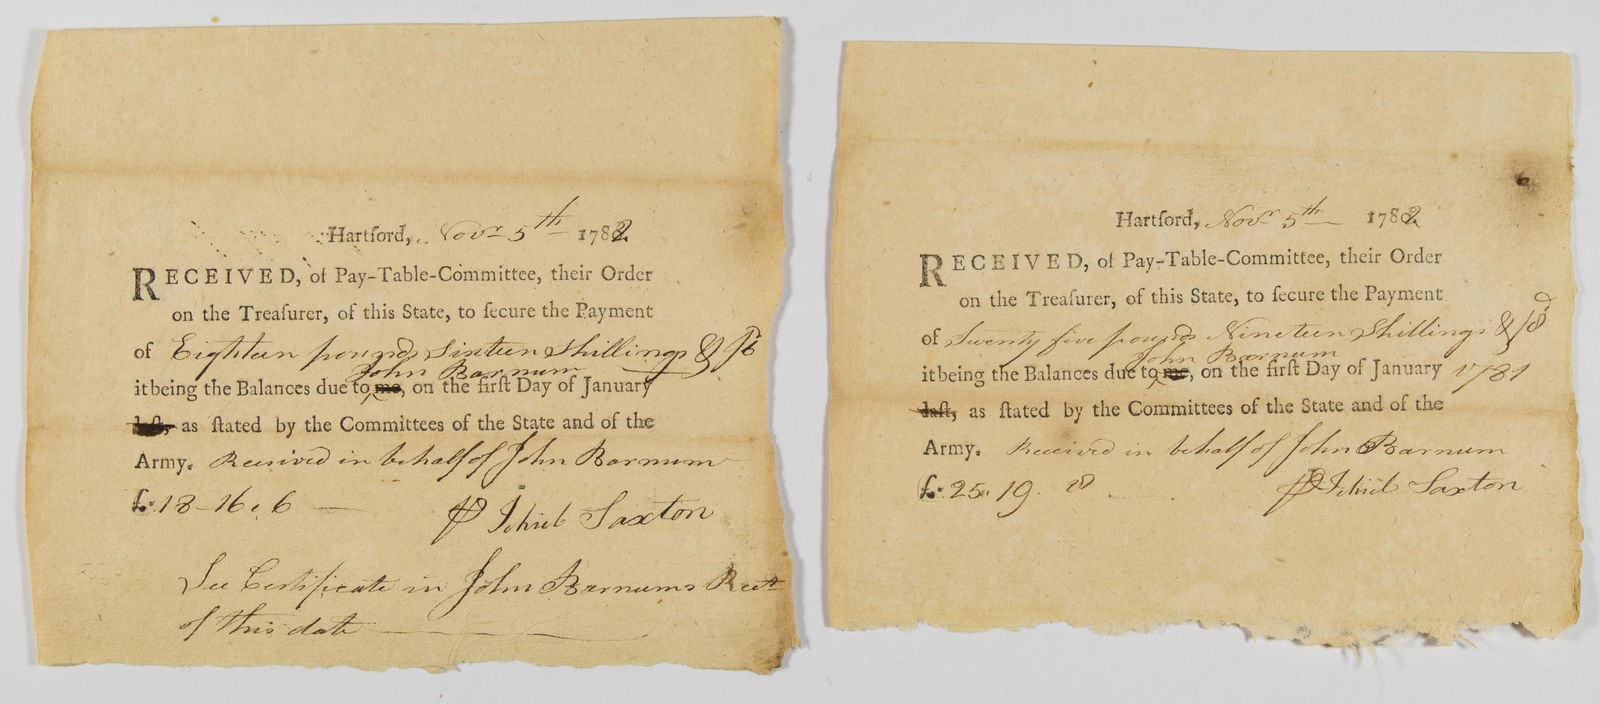 Hartford, Novr 5th 1782
RECEIVED, of Pay-Table-Committee, their Order
on the Treaſurer, of this State, to ſecure the Payment
of Eighteen pounds Sixteen Shillings &
John Barnum
it being the Balances due to me, on the firſt Day of January
laſt, as ſtated by the Committees of the State and of the
Army. Received in behalf of John Barnum
£. 18-16.6
Jehiel Saxton
See Certificate in John Barnums Rect
of this date
Hartford, Novr 5th 1782
RECEIVED, of Pay-Table-Committee, their Order
on the Treaſurer, of this State, to ſecure the Payment
of Twenty five pounds Nineteen Shillings &
John Barnum
it being the Balances due to me, on the firſt Day of January 1781
laſt, as ſtated by the Committees of the State and of the
Army. Received in behalf of John Barnum
£. 25. 19.
Jehiel Saxton